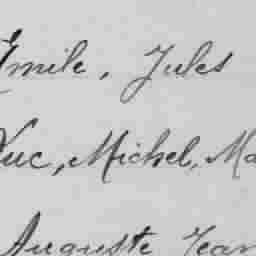 Emile, Jules
Luc, Michel, Ma
Auguste Jean